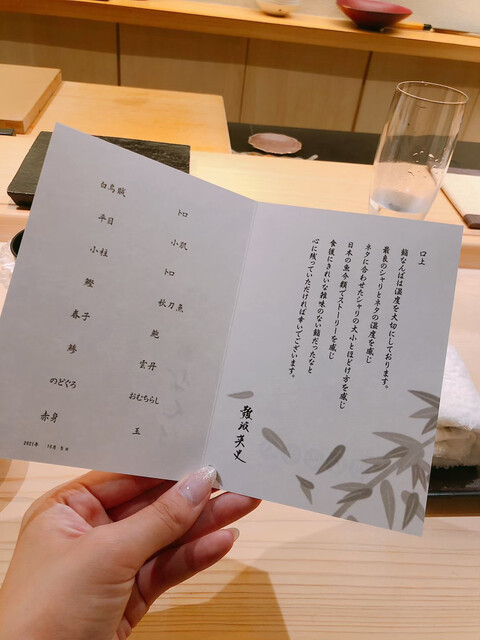 口上
鮨なんばは温度を大切にしております。
最良のシャリとネタの温度を感じ
ネタに合わせたシャリの大小とほどけ方を感じ
日本の魚今額でストーリーを感じ
食後にきれいな雑味のない鮨だったなと
心に残っていただければ幸いでございます。
難波英史
白烏賊
平目
小柱
鰹
春子
鯵
のどぐろ
赤身
トロ
小肌
トロ
秋刀魚
鮑
雲丹
おむちらし
玉